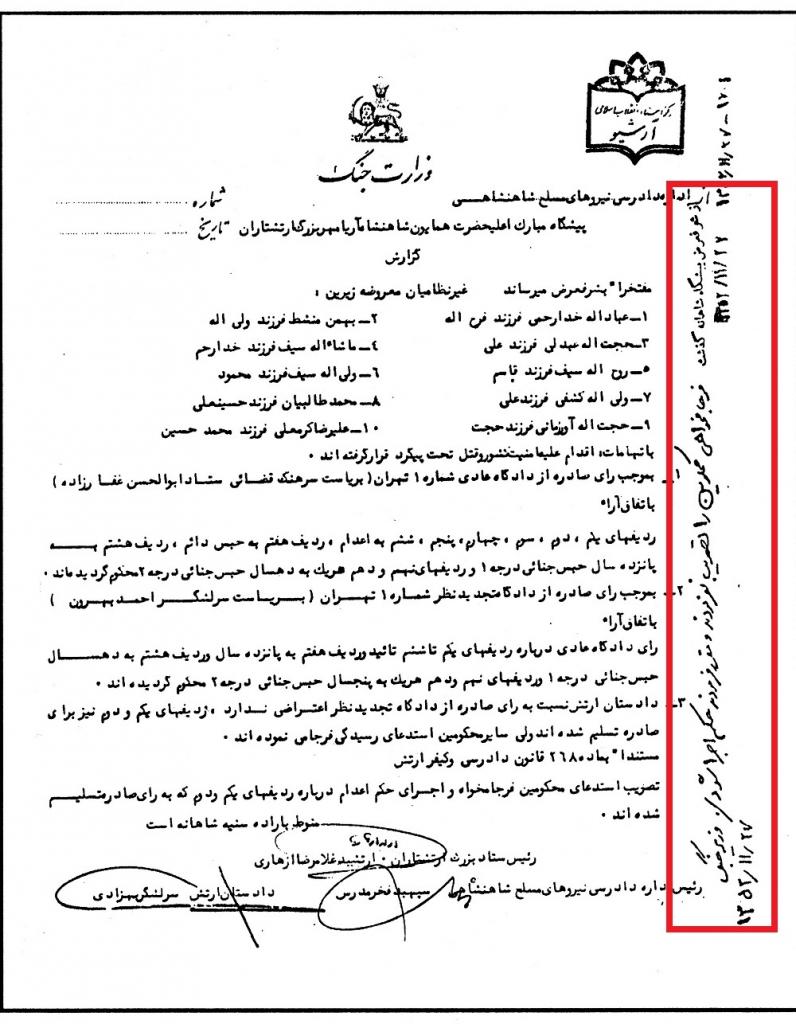 مرکز اسناد انقلاب اسلامی
آرشیو
وزارت جنگ
اداره دادرسی نیروهای مسلح شاهنشاهی
شماره
پیشگاه مبارک اعلیحضرت همایون شاهنشاه آریامهر بزرگ ارتشتاران
تاریخ
گزارش
مفتخرا" بشرفعرض میرساند غیرنظامیان معروضه زیرین :
۱- عباداله خدارحمی فرزند فرج اله
۲- بهمن منشط فرزند ولی اله
۳- حجت اله عبدلی فرزند علی
۴- ماشاءاله سیف فرزند خدارحم
۵- روح اله سیف فرزند قاسم
۶- ولی اله سیف فرزند محمود
۷- ولی اله کشفی فرزند علی
۸- محمد طالبیان فرزند حسینعلی
۹- حجت اله آورزمانی فرزند حجت
۱۰- علیرضا کرمعلی فرزند محمد حسین
باتهامات: اقدام علیه امنیت کشور و قتل تحت پیگرد قرار گرفته اند .
۱- بموجب رای صادره از دادگاه عادی شماره ۱ تهران ( بریاست سرهنگ قضائی ستاد ابوالحسن غفارزاده )
باتفاق آراء
ردیفهای یکم ، دوم ، سوم ، چهارم ، پنجم ، ششم به اعدام ، ردیف هفتم به حبس دائم ، ردیف هشتم به
پانزده سال حبس جنائی درجه ۱ و ردیفهای نهم و دهم هریک به دهسال حبس جنائی درجه ۲ محکوم گردیده اند .
۲- بموجب رای صادره از دادگاه تجدید نظر شماره ۱ تهران ( بریاست سرلشگر احمد بهرون )
باتفاق آراء
رای دادگاه عادی درباره ردیفهای یکم تا ششم تائید و ردیف هفتم به پانزده سال و ردیف هشتم به دهسال
حبس جنائی درجه ۱ و ردیفهای نهم و دهم هریک به پنجسال حبس جنائی درجه ۲ محکوم گردیده اند .
۳- دادستان ارتش نسبت به رای صادره از دادگاه تجدید نظر اعتراضی ندارد ، ردیفهای یکم و دوم نیز برای
صادره تسلیم شده اند ولی سایر محکومین استدعای رسیدگی فرجامی نموده اند .
مستندا" بماده ۲۶۸ قانون دادرسی و کیفر ارتش
تصویب استدعای محکومین فرجامخواه و اجرای حکم اعدام درباره ردیفهای یکم و دوم که به رای صادره تسلیم
شده اند .
منوط باراده سنیه شاهانه است
رئیس ستاد بزرگ ارتشتاران . ارتشبد غلامرضا ازهاری
رئیس اداره دادرسی نیروهای مسلح شاهنشاهی سپهبد فخر مدرس
دادستان ارتش سرلشگر بهزادی
از شرفعرض پیشگاه شاهانه گذشت ۱۳۵۲/۱۱/۲۷
فرجامخواهی محکومین را تصویب نفرمودند و مقرر فرمودند حکم اجرا شود . وزیر جنگ
۱۳۵۲/۱۱/۲۷